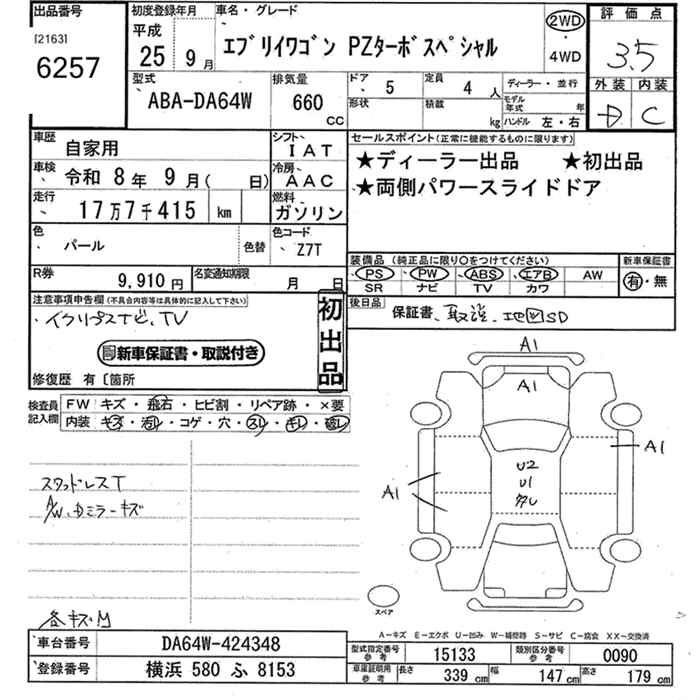 出品番号 初度登録年月 車名・グレード 2WD 評価点
[2163] 平成 エブリイワゴン PZターボスペシャル ・ 3.5
6257 25年 9月 4WD
型式 排気量 ドア 5 定員 4人 ディーラー・並行 外装 内装
ABA-DA64W 660 CC 形状 積載 kg モデル年式 年 D C
ハンドル 左・右
車歴 自家用 シフト IAT セールスポイント(正常に機能するものに限ります)
車検 令和 8年 9月( 日) 冷房 AAC ★ディーラー出品 ★初出品
走行 17万7千415 km 燃料 ガソリン ★両側パワースライドドア
色 パール 色替 色コード Z7T
装備品(純正品に限り○をつけてください) 新車保証書
R券 9,910円 名変通知期限 月 日 PS PW ABS エアB AW 有・無
SR ナビ TV カワ
注意事項申告欄(不具合内容等は具体的に記入して下さい) 初出品 後日品 保証書、取説、地図SD
・イクリプスナビ、TV
新車保証書・取説付き
修復歴 有〔箇所
検査員記入欄 FW キズ・飛石・ヒビ割・リペア跡・×要
内装 キズ・汚れ・コゲ・穴・スレ・キレ・破レ
A1
A1
A1
U2
U1
タレ
A1
スタッドレスT
A/W、ドミラーキズ
スペア
各キズ、M
A-キズ E-エクボ U-凹み W-補修跡 S-サビ C-腐食 XX-交換済
車台番号 DA64W-424348 型式指定番号 参考 15133 類別区分番号 参考 0090
登録番号 横浜 580 ふ 8153 車庫証明用 参考 長さ 339 cm 幅 147 cm 高さ 179 cm